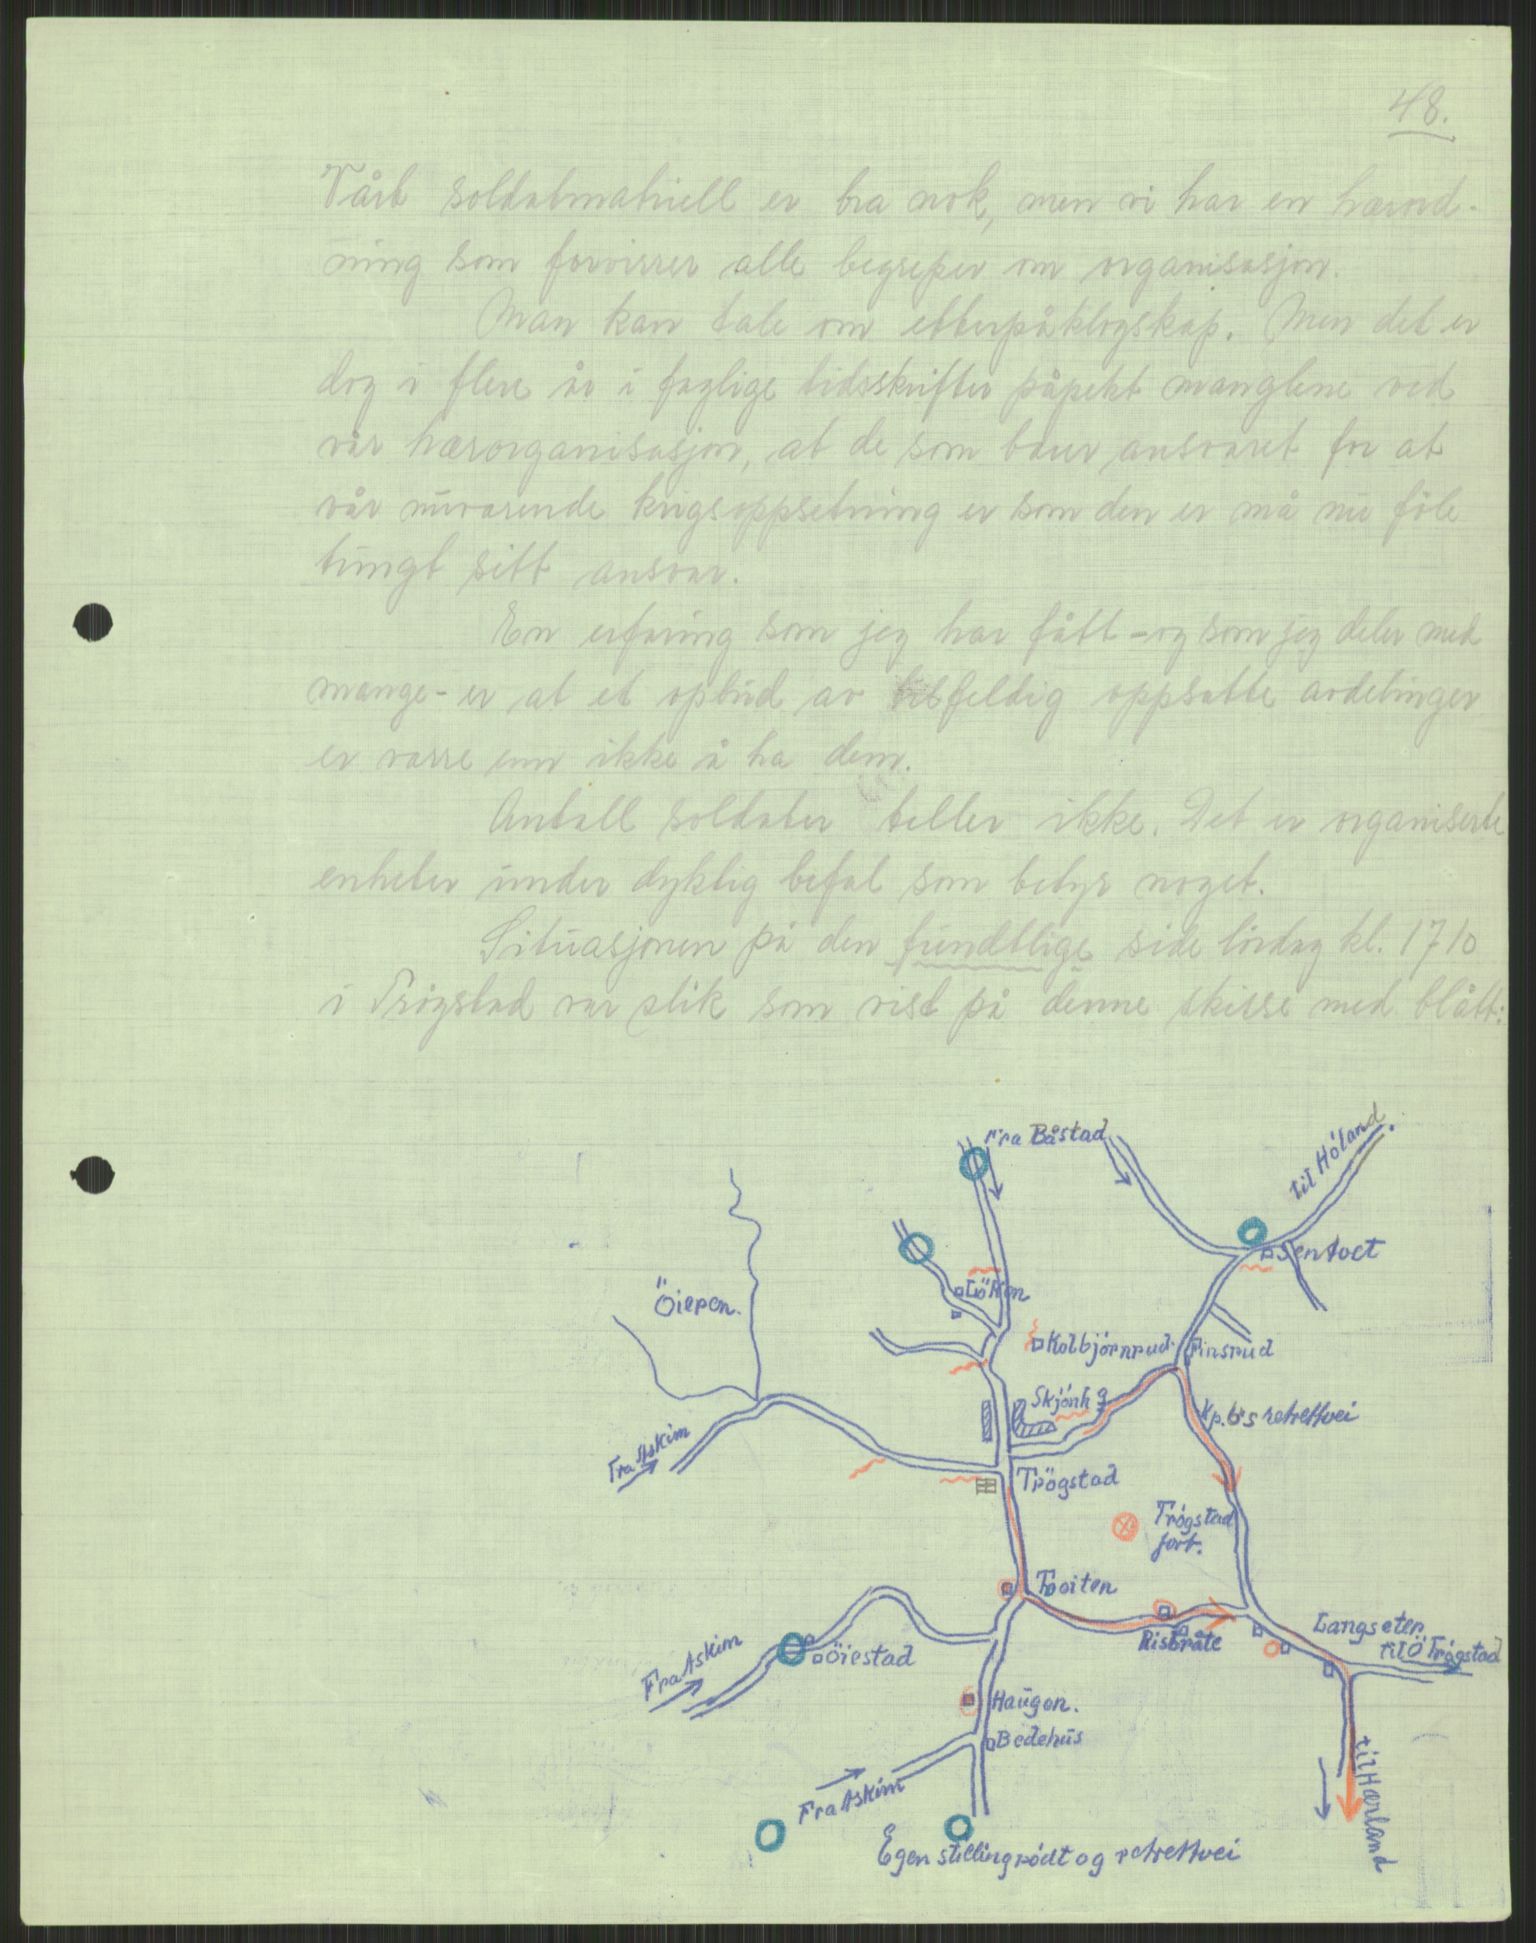 48.
Vårt soldatmatriell er bra nok, men vi har en hærord-
ning som forvirrer alle begreper om organisasjon.
Man kan tale om etterpåklogskap. Men det er
dog i flere år i faglige tidsskrifter påpekt manglene ved
vår hærorganisasjon, at de som bærer ansvaret for at
vår nuværende krigsoppsetning er som den er må nu føle
tungt sitt ansvar.
En erfaring som jeg har fått - og som jeg deler med
mange - er at et opbud av tilfeldig oppsatte avdelinger
er værre enn ikke å ha dem.
Antall soldater teller ikke. Det er organiserte
enheter under dyktig befal som betyr noget.
Situasjonen på den fiendtlige side lördag kl. 1710
i Trögstad var slik som vist på denne skisse med blått:
Fra Båstad
til Höland
Sentvet
Öieren.
Lökon
Kolbjörnrud
Finsrud
Skjönh g
Kp. 6's retrettvei
Fra Askim
Trögstad
Trögstad
fort.
Tooiten
Langseter
til Ö Trögstad
Risbråte
Fra Askim
Öiestad
Haugen.
Bedehus
til Hærland
Fra Askim
Egen stilling rödt og retrettvei